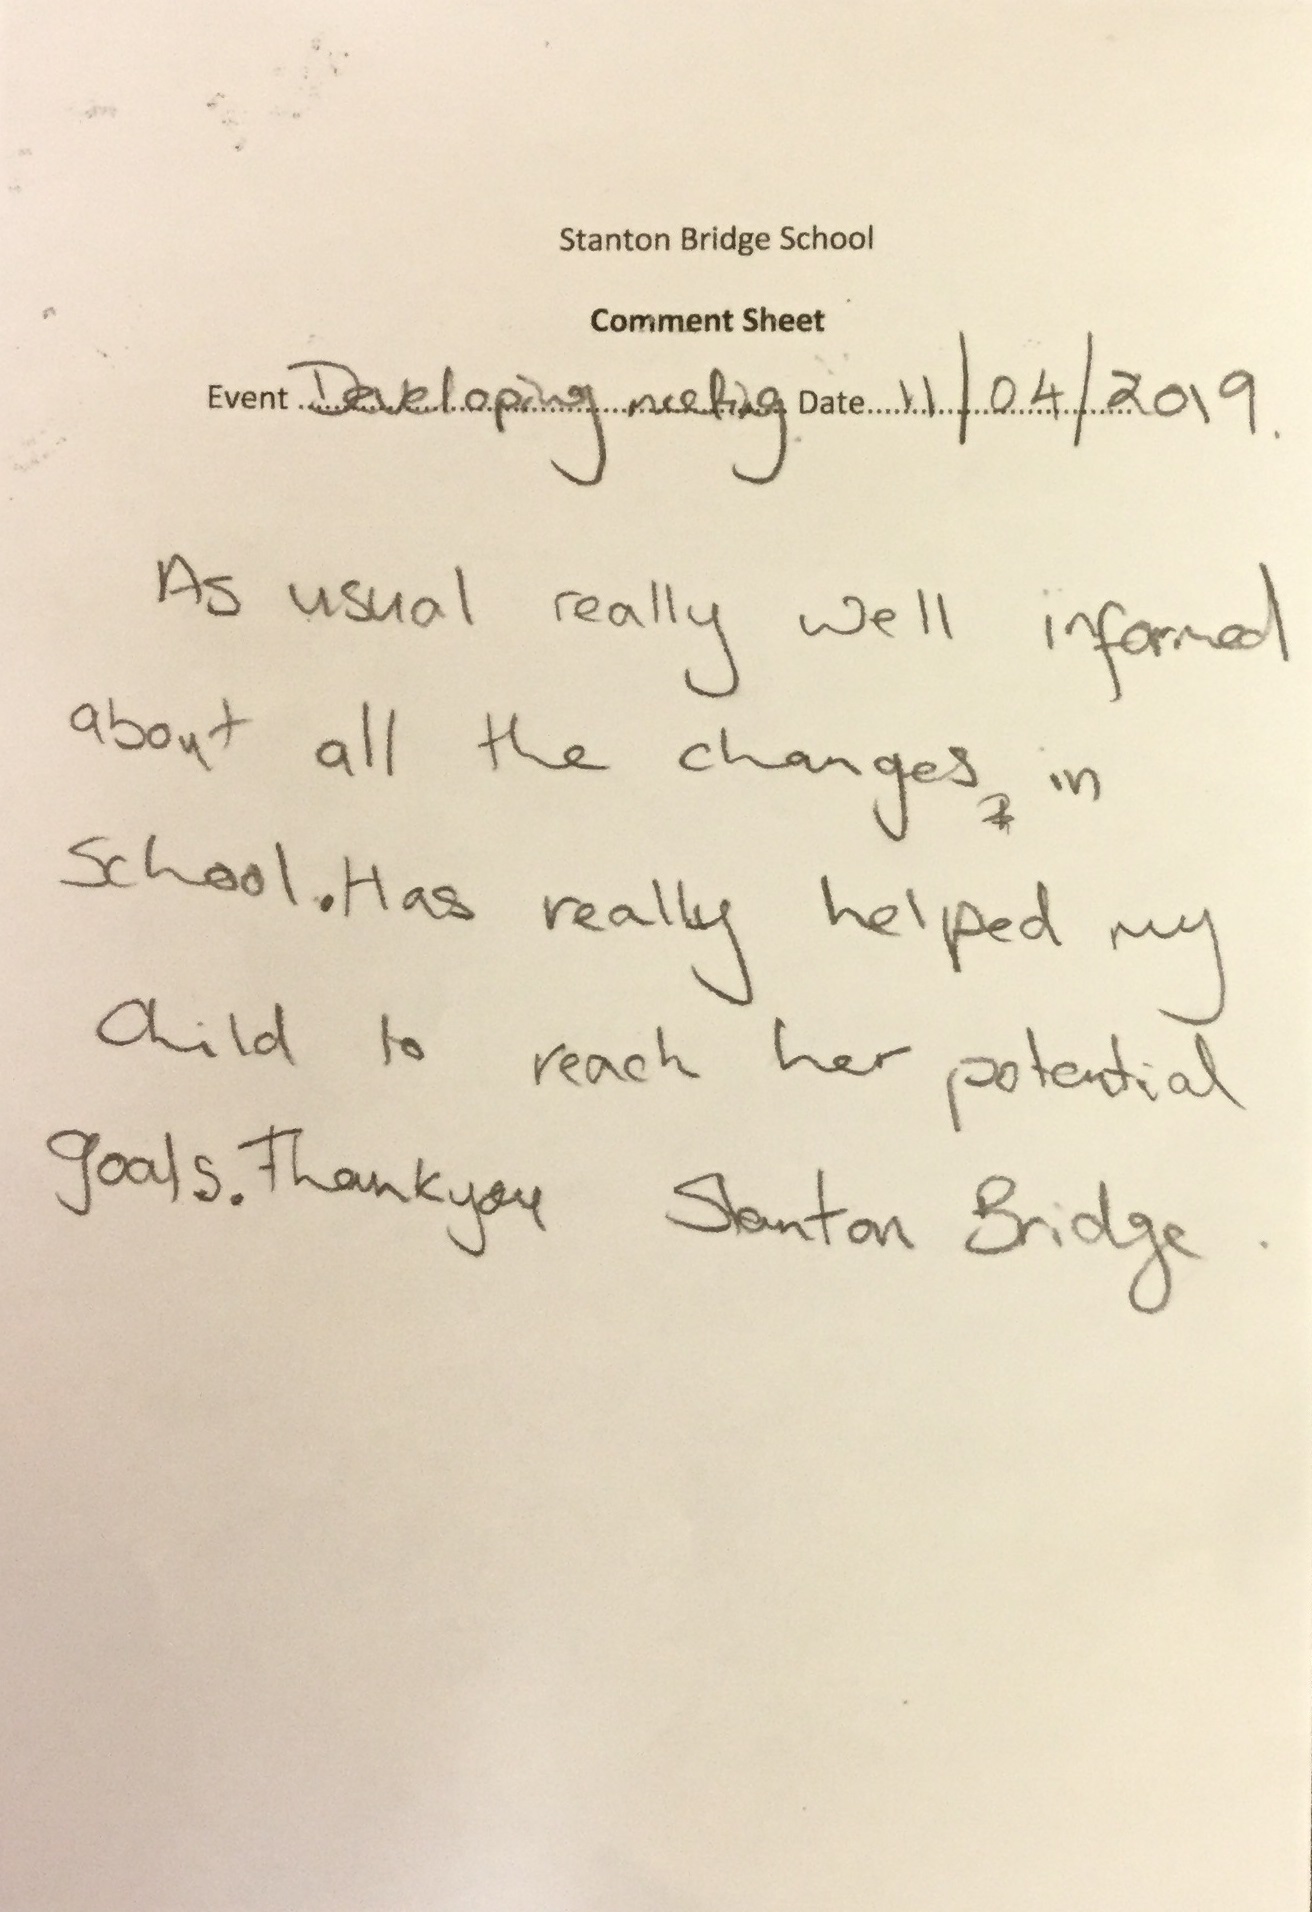 Stanton Bridge School
Comment Sheet
Event Developing meeting Date 11/04/2019.
As usual really well informed
about all the changes, in
School. Has really helped my
Child to reach her potential
goals. Thankyou Stanton Bridge.